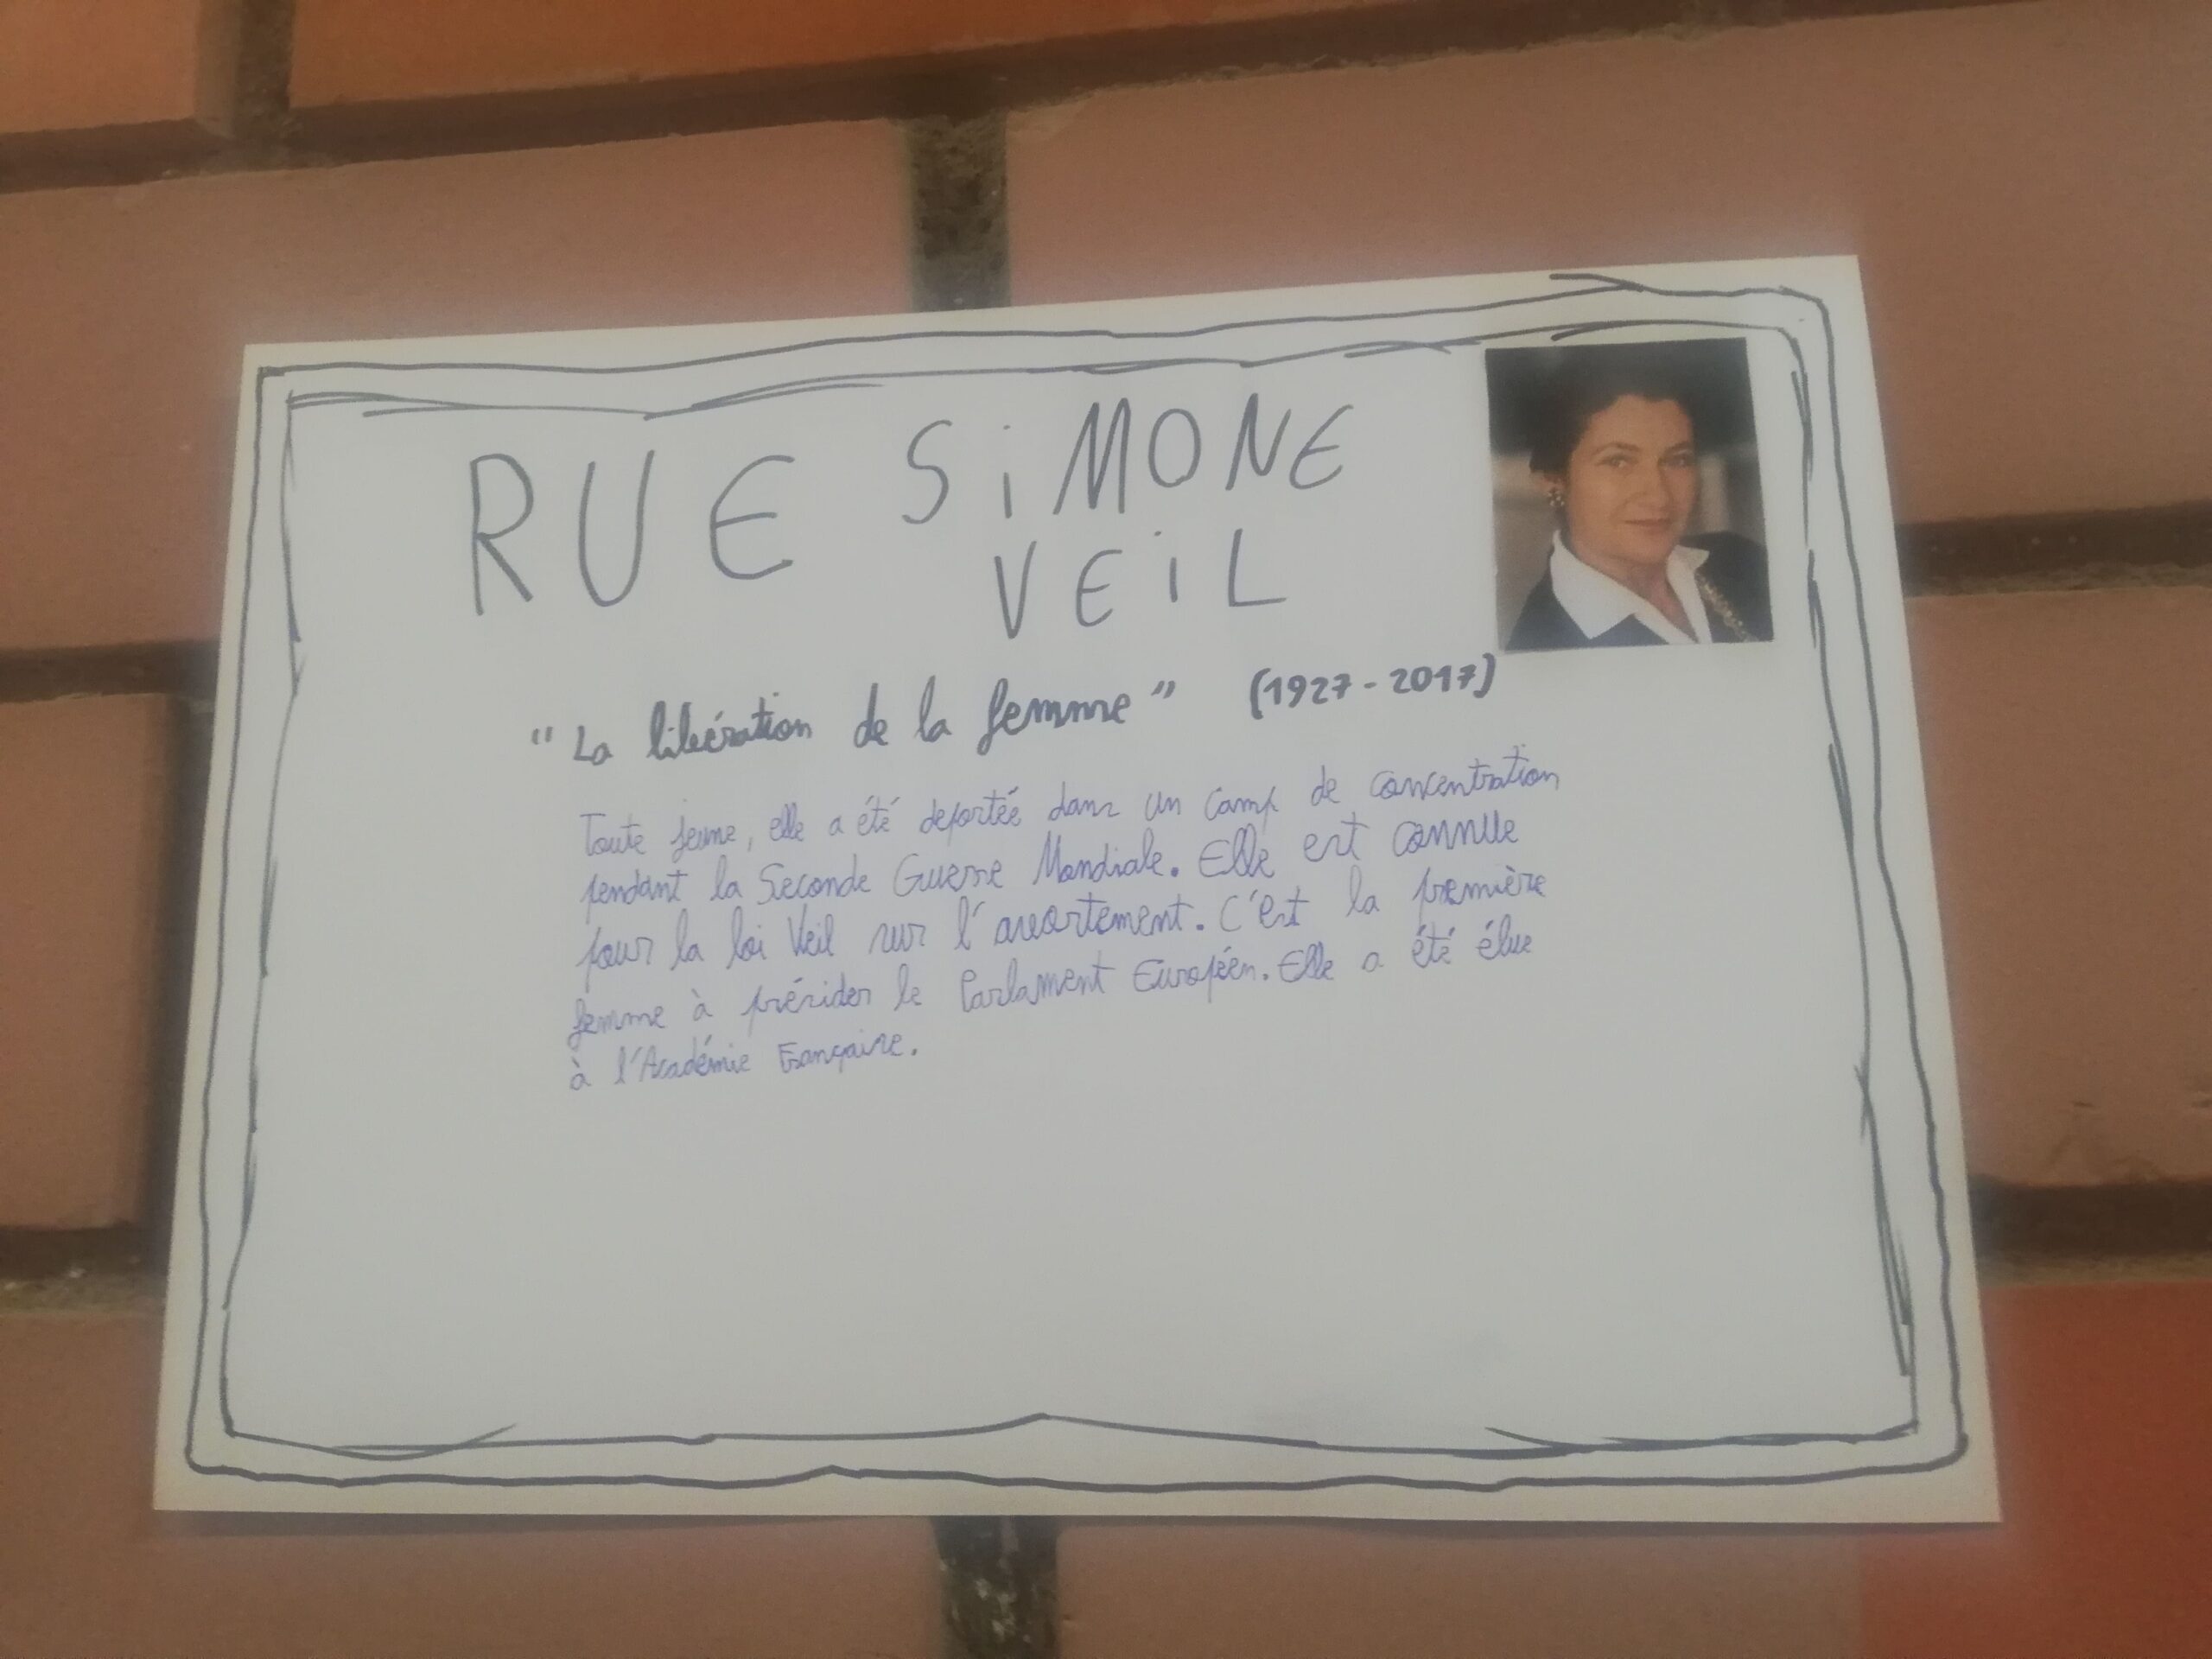 RUE SiMONE
VEiL
"La libération de la femme" (1927-2017)
Toute jeune, elle a été deportée dans un camp de concentration
pendant la Seconde Guerre Mondiale. Elle est connue
pour la loi Veil sur l'avortement. C'est la première
femme à présider le Parlament Européen. Elle a été élue
à l'Académie Française.